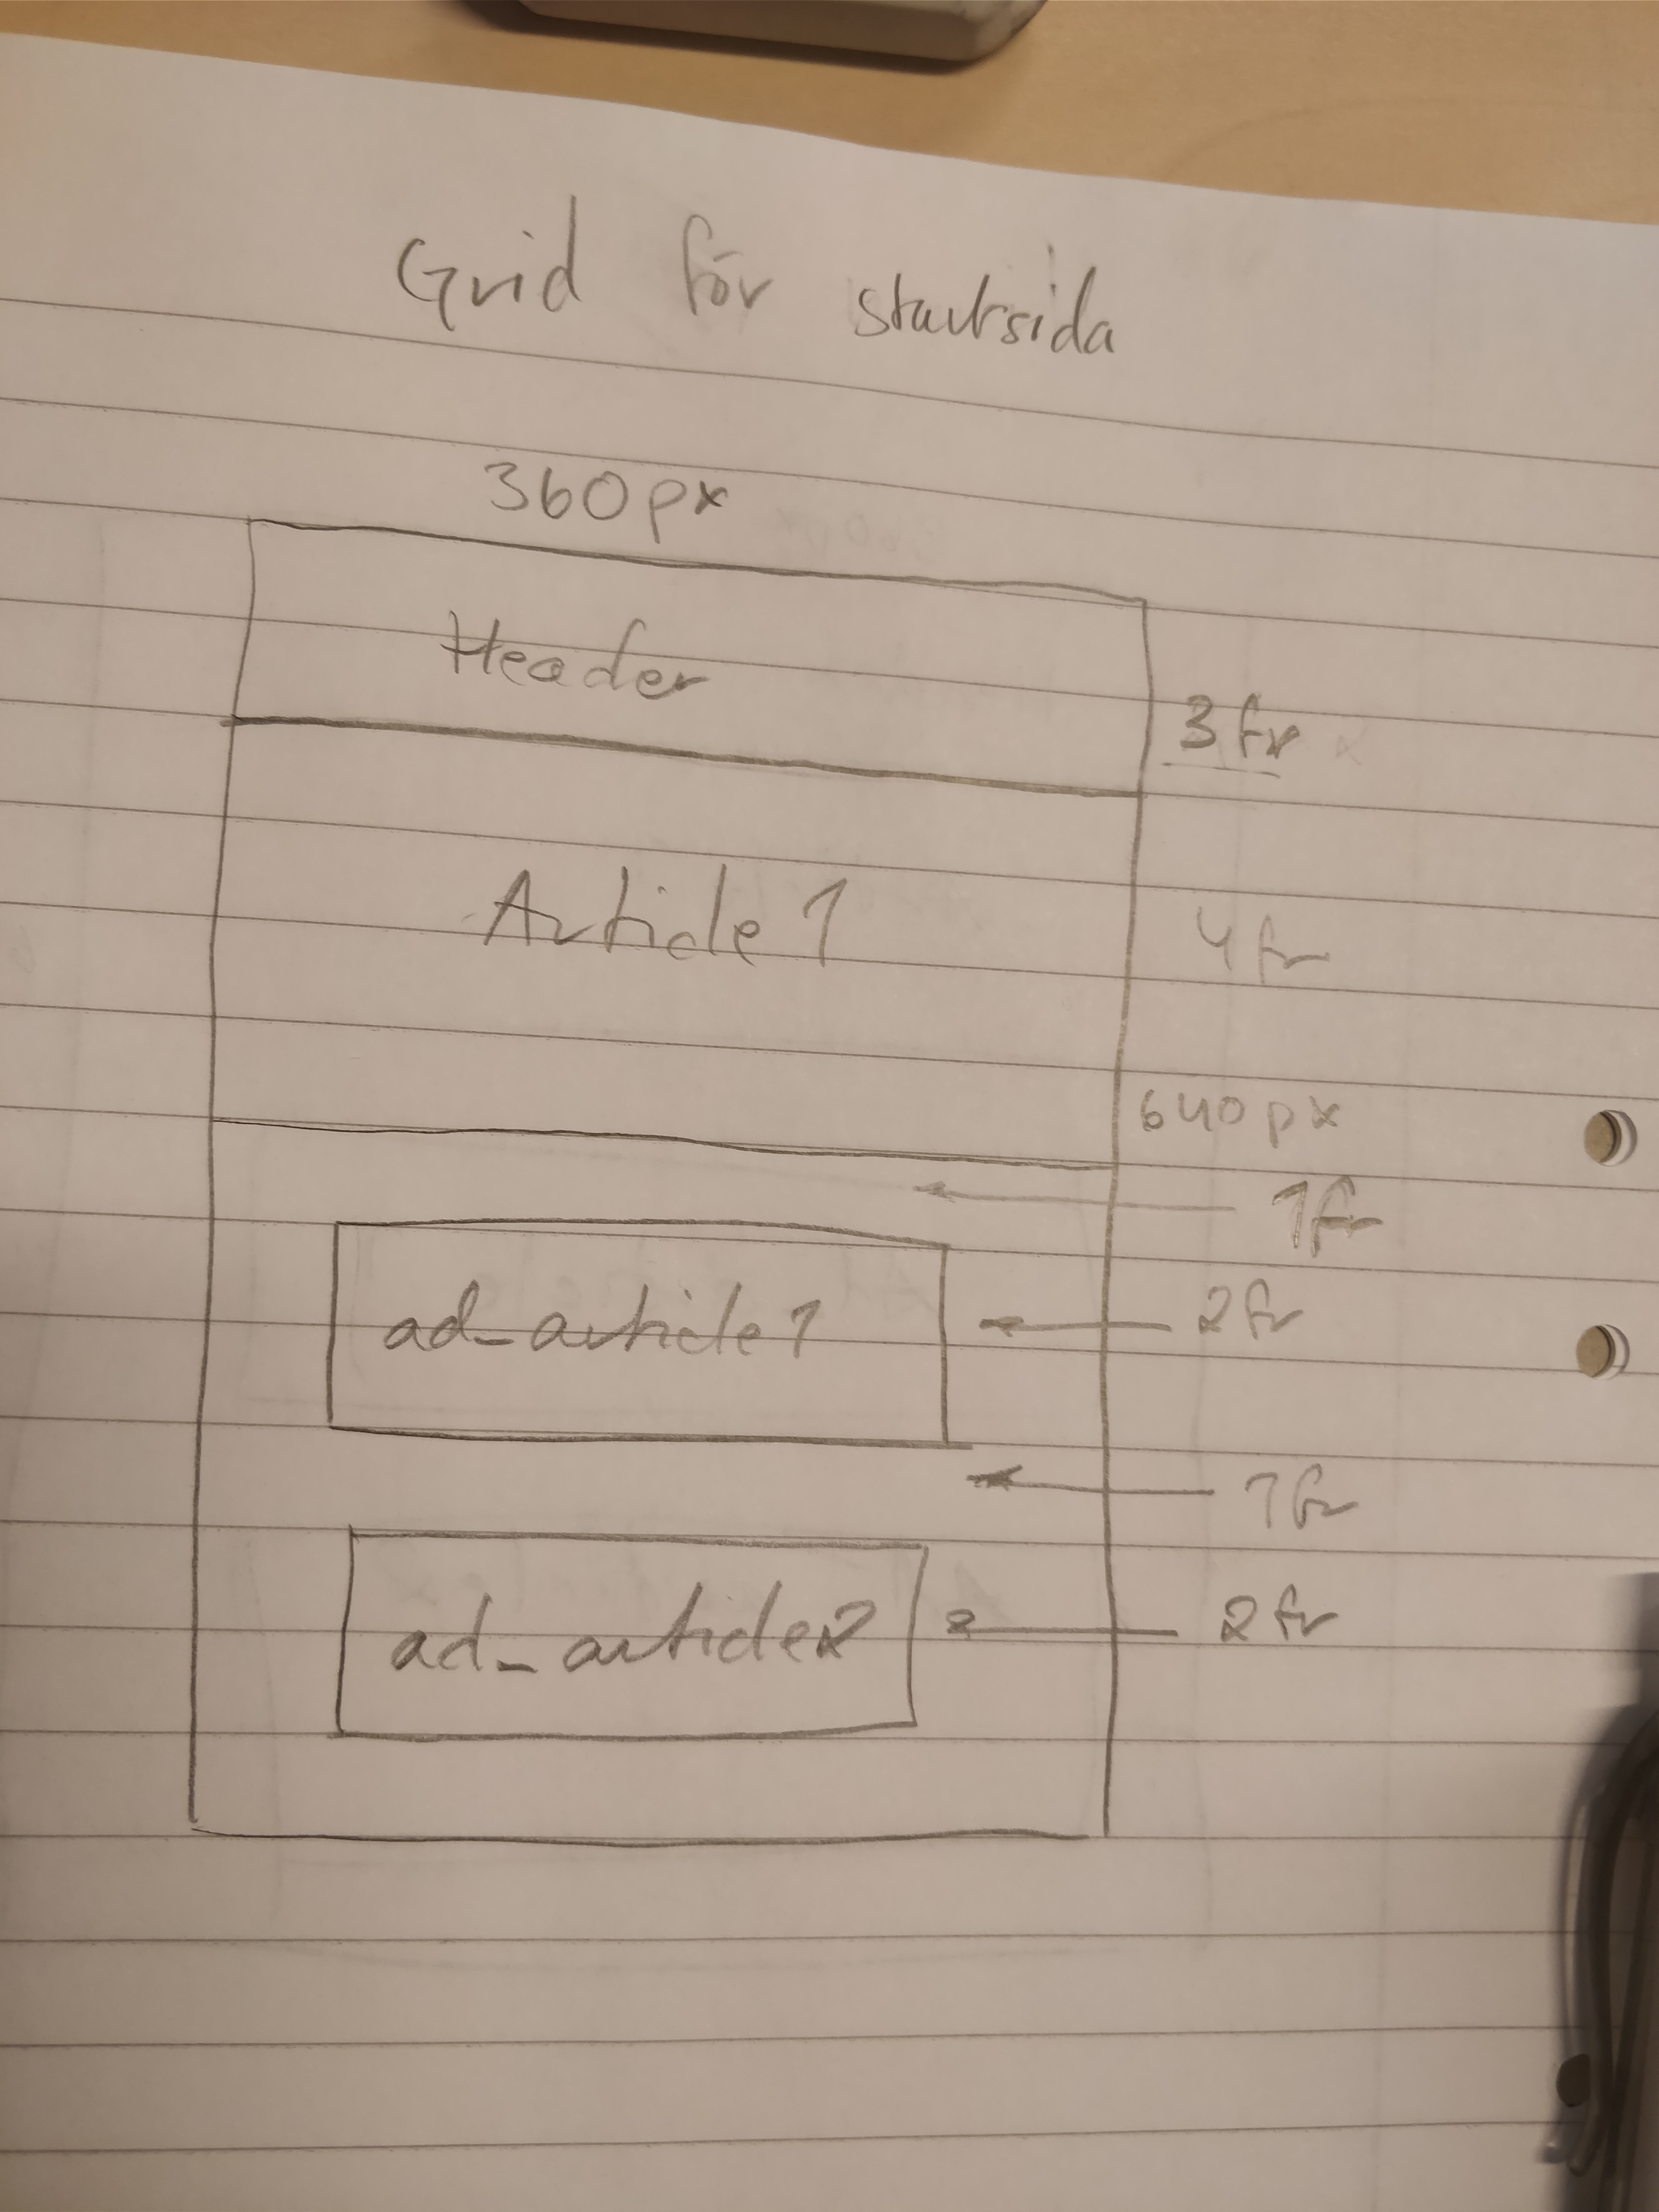 Grid för startsida
360px
Header
3fr
Article 1
4fr
640px
1fr
ad_article1
2fr
1fr
ad_article2
2fr